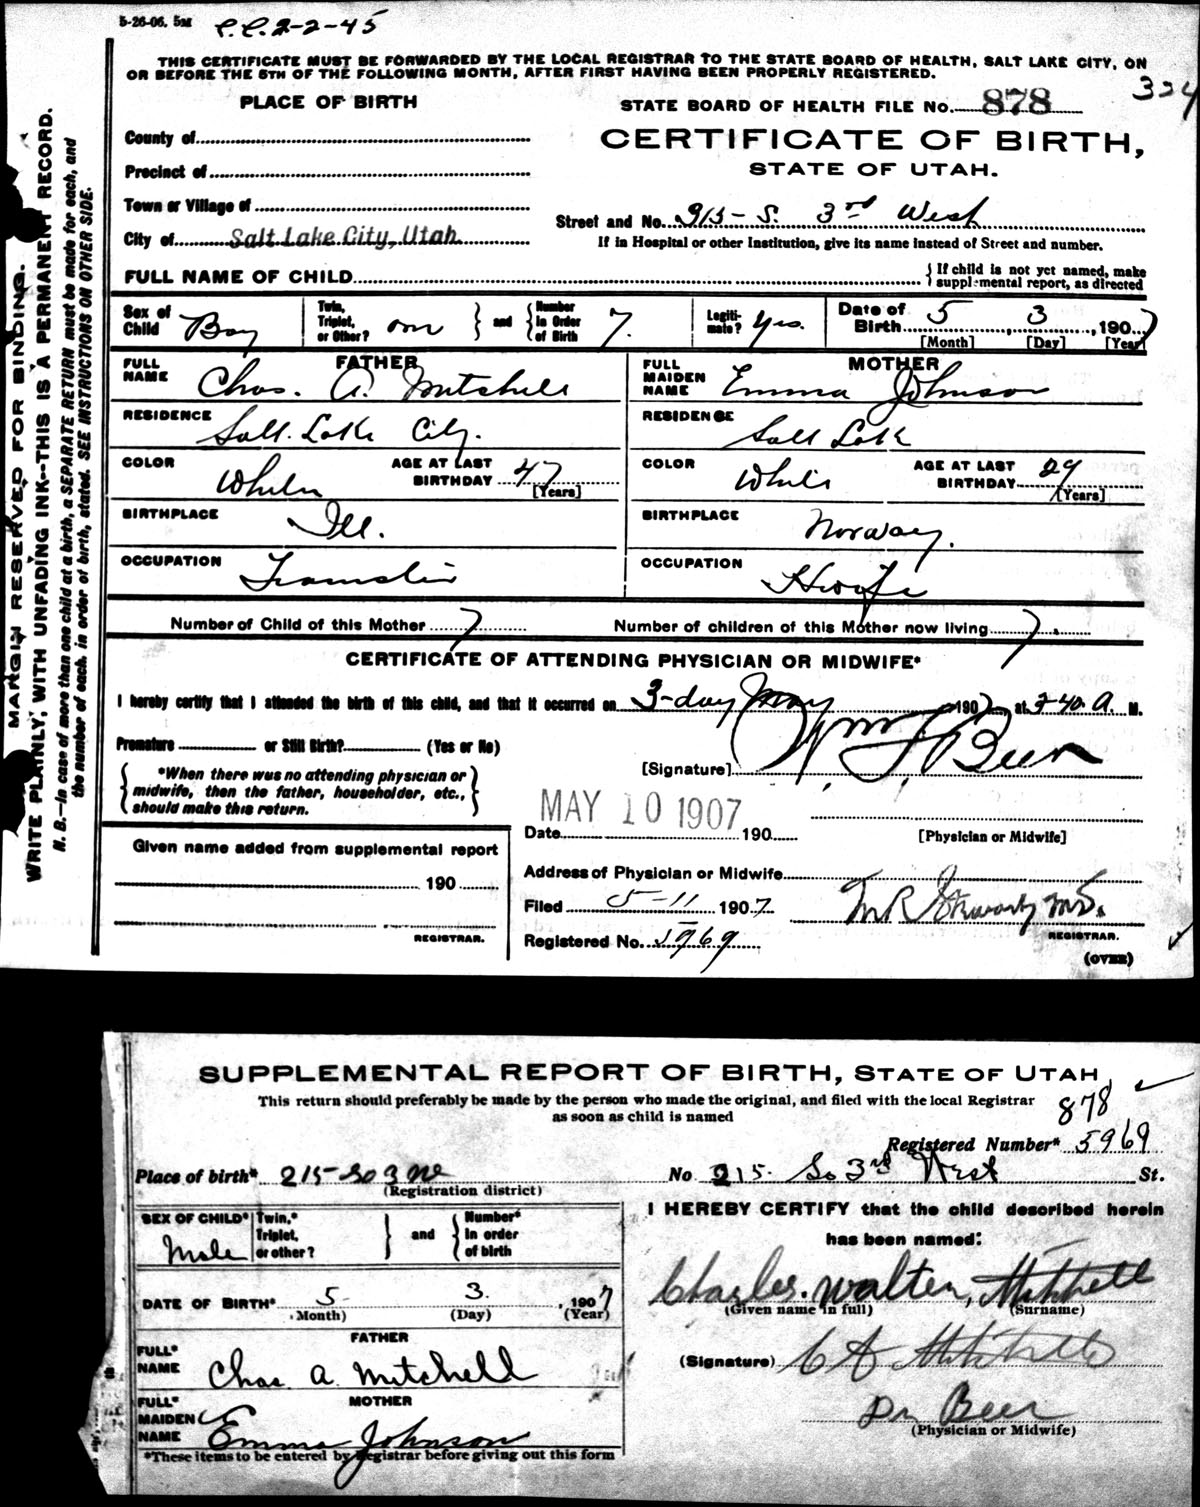 5-26-06. 5M C.C. 2-2-45
THIS CERTIFICATE MUST BE FORWARDED BY THE LOCAL REGISTRAR TO THE STATE BOARD OF HEALTH, SALT LAKE CITY, ON
OR BEFORE THE 5TH OF THE FOLLOWING MONTH, AFTER FIRST HAVING BEEN PROPERLY REGISTERED.
324
PLACE OF BIRTH
STATE BOARD OF HEALTH FILE No. 878
CERTIFICATE OF BIRTH,
STATE OF UTAH.
County of
Precinct of
Town or Village of
City of Salt Lake City, Utah
Street and No. 915 - S. 3rd West
If in Hospital or other Institution, give its name instead of Street and number.
FULL NAME OF CHILD
{If child is not yet named, make
supplemental report, as directed
Sex of Child Boy
Twin, Triplet, or Other? one
and
Number In Order of Birth 7.
Legiti-mate? Yes.
Date of Birth 5, 3, 1907
[Month] [Day] [Year]
FATHER
FULL NAME Chas. A. Mitchell
RESIDENCE Salt Lake City.
COLOR White
AGE AT LAST BIRTHDAY 47
[Years]
BIRTHPLACE Ill.
OCCUPATION Teamster
MOTHER
FULL MAIDEN NAME Emma Johnson
RESIDENCE Salt Lake
COLOR White
AGE AT LAST BIRTHDAY 29
[Years]
BIRTHPLACE Norway.
OCCUPATION Hwife
Number of Child of this Mother 7
Number of children of this Mother now living 7.
CERTIFICATE OF ATTENDING PHYSICIAN OR MIDWIFE*
I hereby certify that I attended the birth of this child, and that it occurred on 3-day May 1907, at 3-40 A. M.
Premature or Still Birth? (Yes or No)
*When there was no attending physician or
midwife, then the father, householder, etc.,
should make this return.
[Signature] Wm. F. Beer
[Physician or Midwife]
MAY 10 1907
Date 190
Given name added from supplemental report
190
REGISTRAR.
Address of Physician or Midwife
Filed 5-11 1907
M.D.
REGISTRAR.
Registered No. 5969
(OVER)
MARGIN RESERVED FOR BINDING.
WRITE PLAINLY, WITH UNFADING INK--THIS IS A PERMANENT RECORD.
N. B.--In case of more than one child at a birth, a SEPARATE RETURN must be made for each, and
the number of each, in order of birth, stated. SEE INSTRUCTIONS ON OTHER SIDE.
SUPPLEMENTAL REPORT OF BIRTH, STATE OF UTAH
This return should preferably be made by the person who made the original, and filed with the local Registrar
as soon as child is named
878
Registered Number* 5969
Place of birth* 215 - So 3 W
(Registration district)
No 915 So 3rd West St.
SEX OF CHILD* Male
Twin,* Triplet, or other?
and
Number* in order of birth
DATE OF BIRTH* 5 3. , 1907
(Month) (Day) (Year)
FATHER
FULL* NAME Chas. A. Mitchell
MOTHER
FULL* MAIDEN NAME Emma Johnson
*These items to be entered by Registrar before giving out this form
I HEREBY CERTIFY that the child described herein
has been named:
Charles. Walter, Mitchell
(Given name in full) (Surname)
(Signature) C A Mitchell
Dr Beer
(Physician or Midwife)